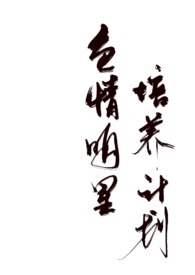 色情明星
培养计划